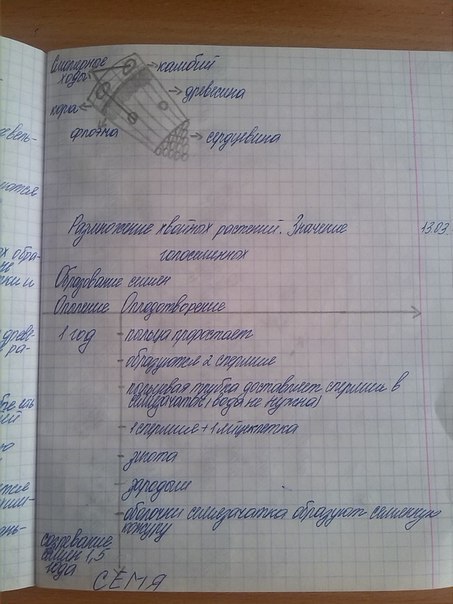 смоляные
ходы
камбий
древесина
кора
флоэма
сердцевина
Размножение хвойных растений. Значение
13.03
голосеменных
Образование семян
Опыление Оплодотворение
1 год
- пыльца прорастает
- образуются 2 спермия
- пыльцевая трубка доставляет спермии в
семязачаток (вода не нужна)
- 1 спермий + 1 яйцеклетка
- зигота
- зародыш
- оболочки семязачатка образуют семенную
кожуру
созревание
семян 1,5
года
СЕМЯ